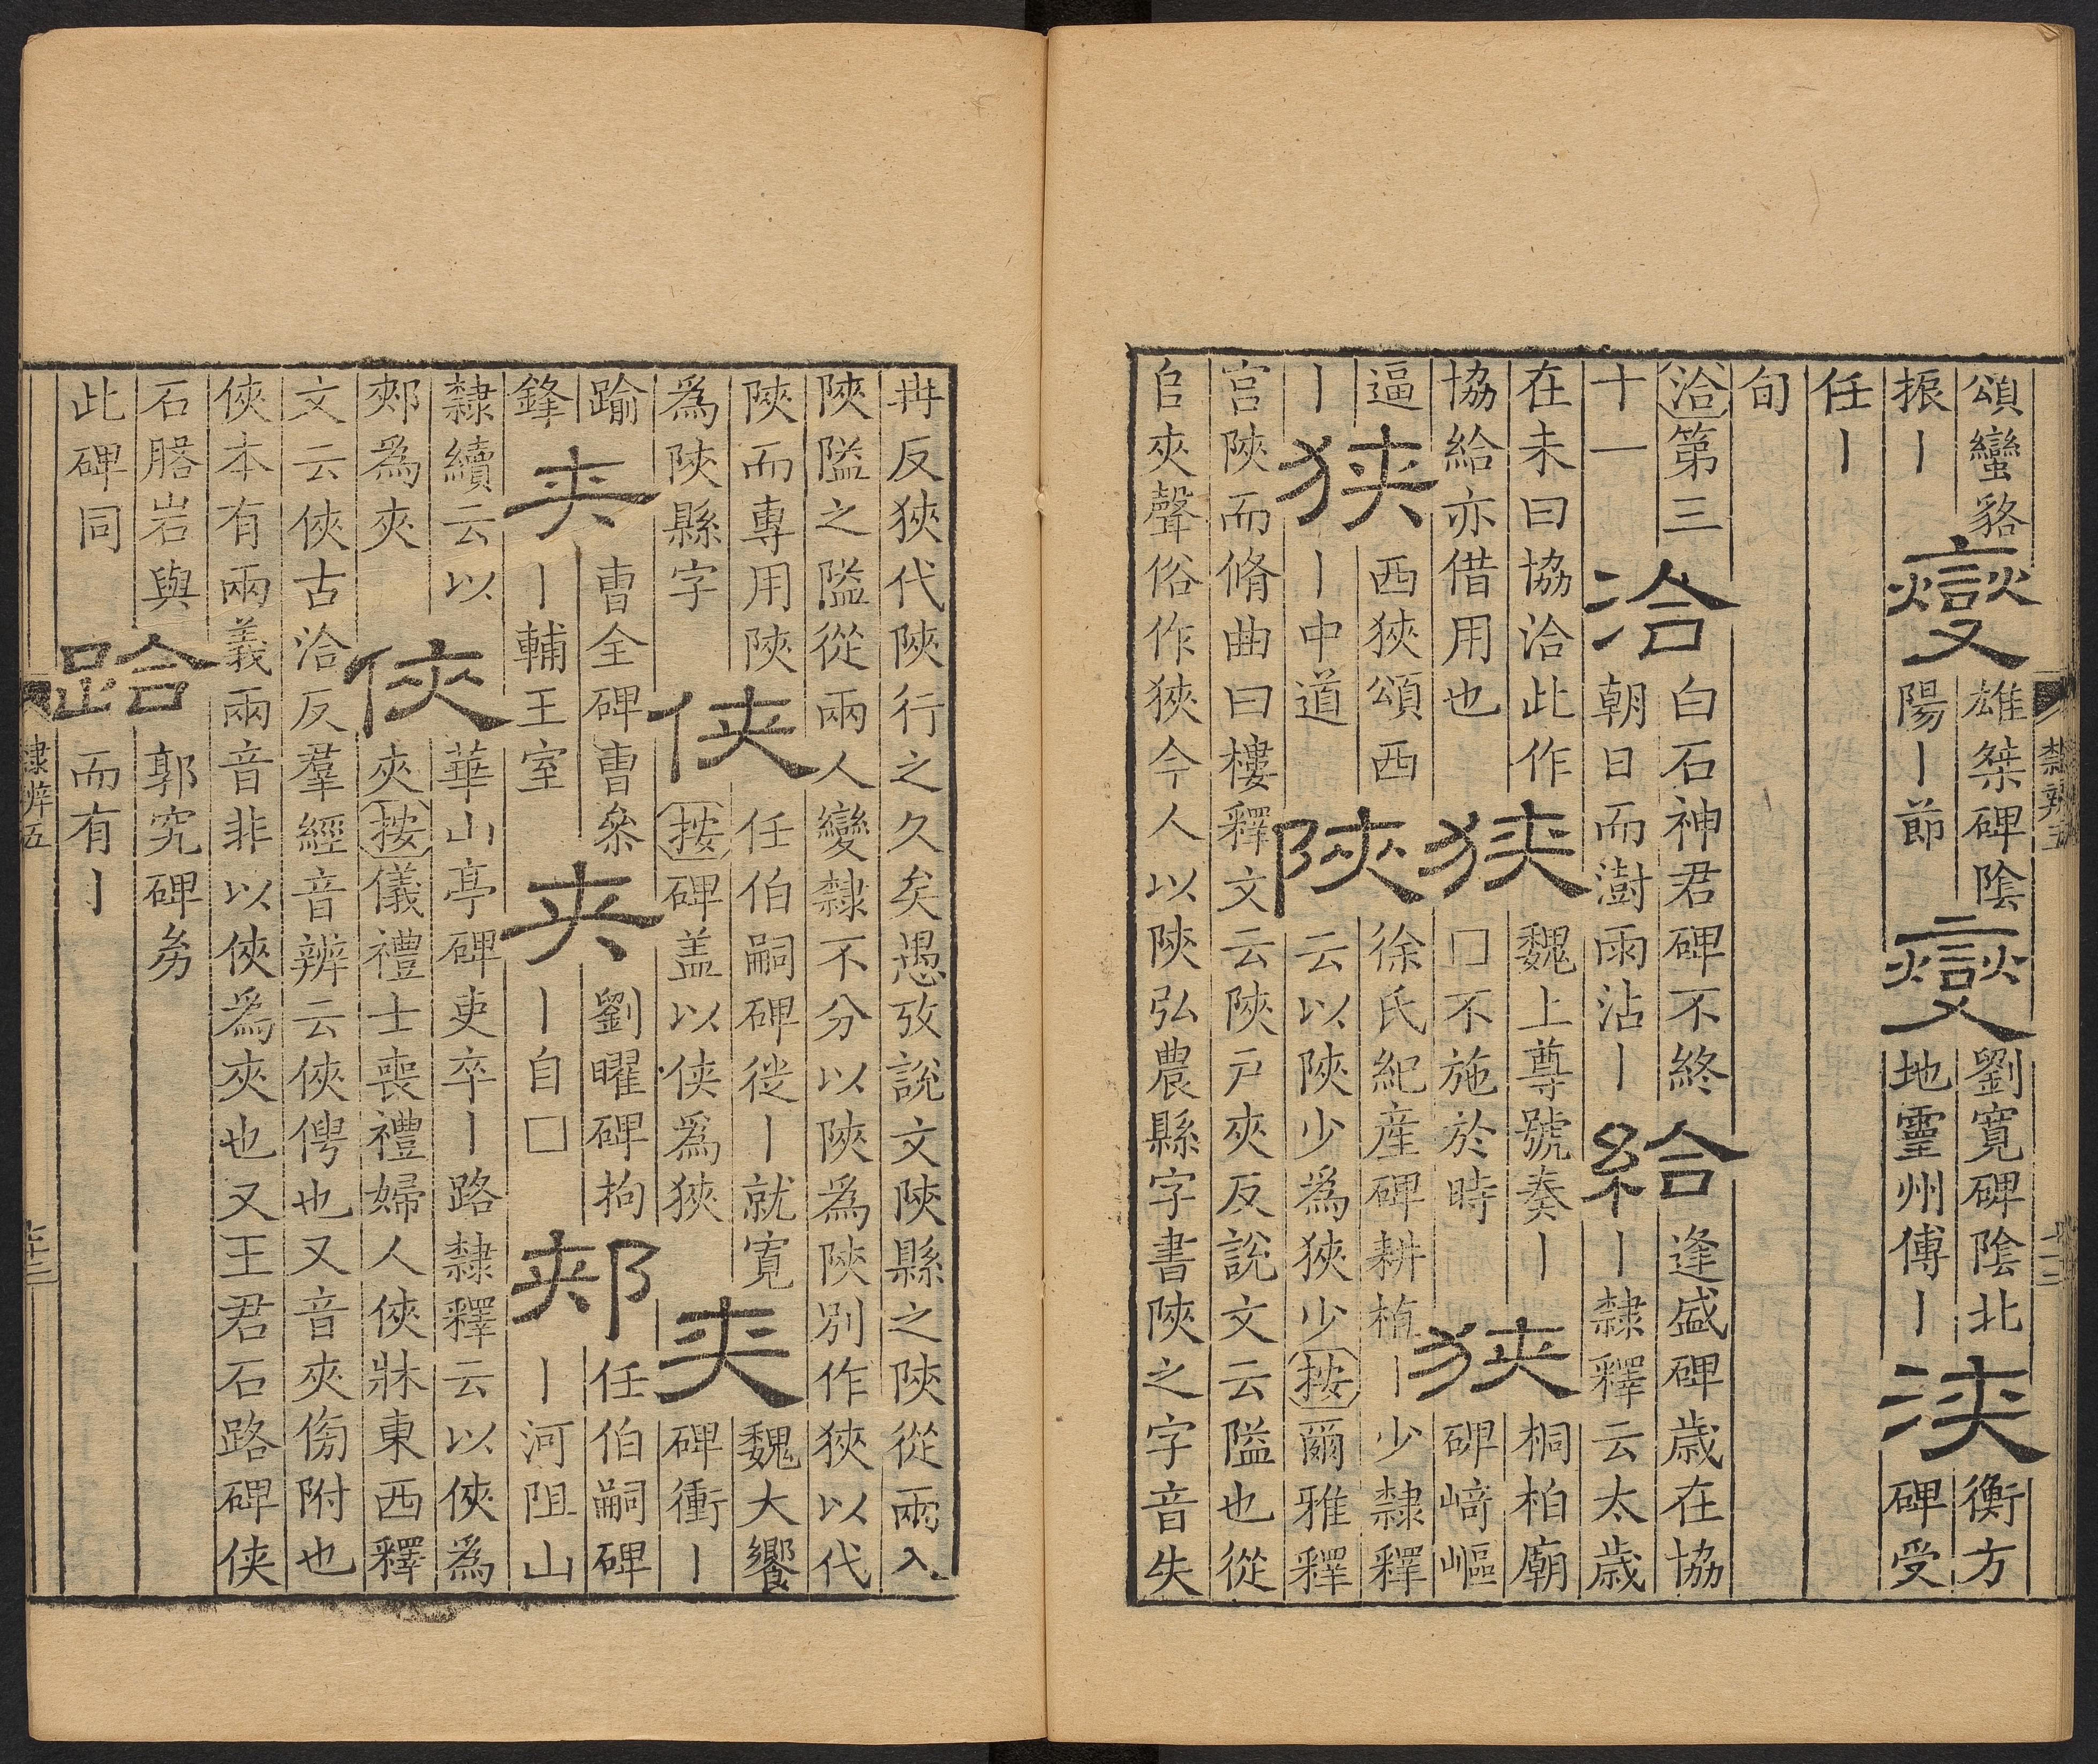 頌蠻貉
振丨
燮
雄桀碑陰
陽丨節
燮
劉寬碑陰北
地靈州傅丨
浹
衡方
碑受
任丨
旬
洽第三
十一
洽
白石神君碑不終
朝日而澍雨沾丨
給
逢盛碑歳在協
丨隸釋云太歳
在未曰協洽此作
協給亦借用也
狹
魏上尊號奏丨
囗不施於時
狹
桐柏廟
碑﨑嶇
逼
丨
狹
西狹頌西
丨中道
陜
徐氏紀産碑耕植丨少隸釋
云以陜少爲狹少按爾雅釋
宮陜而脩曲曰樓釋文云陜戶夾反說文云隘也從
𨸏夾聲俗作狹今人以陜弘農縣字書陜之字音失
隸辨五
冉反狹代陜行之久矣愚攷說文陜縣之陜從兩入
陜隘之隘從兩人變隸不分以陜爲陜別作狹以代
陜而專用陜
爲陜縣字
俠
任伯嗣碑徙丨就寛
按碑盖以俠爲狹
夾
魏大饗
碑衝丨
踰
鋒
夾
曹全碑曹叅
丨輔王室
夾
劉曜碑拘
丨自囗
郟
任伯嗣碑
丨河阻山
隸續云以
郟爲夾
俠
華山亭碑吏卒丨路隸釋云以俠爲
夾按儀禮士喪禮婦人俠牀東西釋
文云俠古洽反羣經音辨云俠俜也又音夾傍附也
俠本有兩義兩音非以俠爲夾也又王君石路碑俠
石䐙岩與
此碑同
跲
郭究碑劵
而有丨
隸辨五